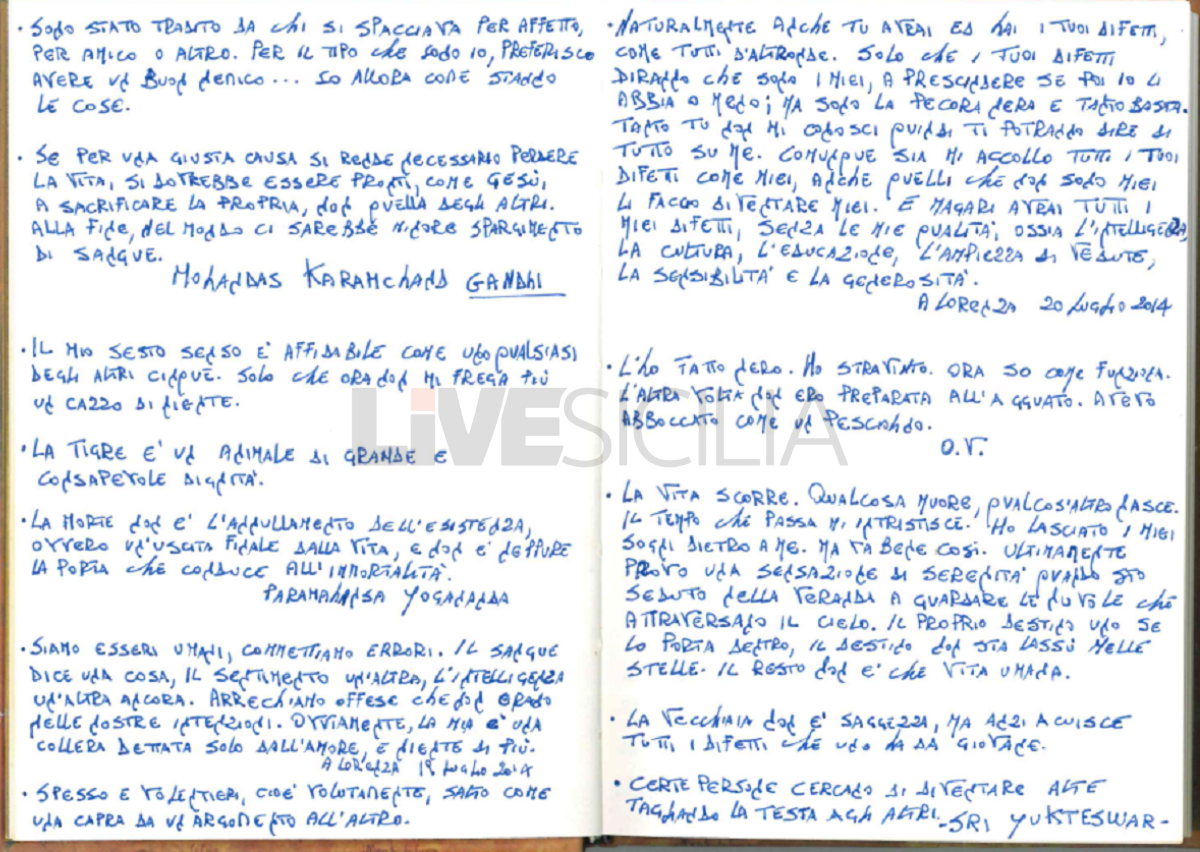 · SONO STATO TRADITO DA CHI SI SPACCIAVA PER AFFETTO,
PER AMICO O ALTRO. PER IL TIPO CHE SONO IO, PREFERISCO
AVERE UN BUON NEMICO... SO ALLORA COME STANNO
LE COSE.
· SE PER UNA GIUSTA CAUSA SI RENDE NECESSARIO PERDERE
LA VITA, SI DOVREBBE ESSERE PRONTI, COME GESÙ,
A SACRIFICARE LA PROPRIA, NON QUELLA DEGLI ALTRI.
ALLA FINE, NEL MONDO CI SAREBBE MINORE SPARGIMENTO
DI SANGUE.
MOHANDAS KARAMCHAND GANDHI
· IL MIO SESTO SENSO E' AFFIDABILE COME UNO QUALSIASI
DEGLI ALTRI CINQUE. SOLO CHE ORA NON MI FREGA PIÙ
UN CAZZO DI NIENTE.
· LA TIGRE E' UN ANIMALE DI GRANDE E
CONSAPEVOLE DIGNITA'.
· LA MORTE NON E' L'ANNULLAMENTO DELL'ESISTENZA,
OVVERO UN'USCITA FINALE DALLA VITA, E NON E' NEPPURE
LA PORTA CHE CONDUCE ALL'IMMORTALITA'.
PARAMAHANSA YOGANANDA
· SIAMO ESSERI UMANI, COMMETTIAMO ERRORI. IL SANGUE
DICE UNA COSA, IL SENTIMENTO UN'ALTRA, L'INTELLIGENZA
UN'ALTRA ANCORA. ARRECHIAMO OFFESE CHE NON ERANO
NELLE NOSTRE INTENZIONI. OVVIAMENTE, LA MIA E' UNA
COLLERA DETTATA SOLO DALL'AMORE, E NIENTE DI PIÙ.
A LORENZA 19 LUGLIO 2014
· SPESSO E VOLENTIERI, CIOE' VOLUTAMENTE, SALTO COME
UNA CAPRA DA UN ARGOMENTO ALL'ALTRO.
· NATURALMENTE ANCHE TU AVRAI ED HAI I TUOI DIFETTI,
COME TUTTI D'ALTRONDE. SOLO CHE I TUOI DIFETTI
DIRANNO CHE SONO I MIEI, A PRESCINDERE SE POI IO LI
ABBIA O MENO; MA SONO LA PECORA NERA E TANTO BASTA.
TANTO TU NON MI CONOSCI QUINDI TI POTRANNO DIRE DI
TUTTO SU ME. COMUNQUE SIA MI ACCOLLO TUTTI I TUOI
DIFETTI COME MIEI, ANCHE QUELLI CHE NON SONO MIEI
LI FACCIO DIVENTARE MIEI. E MAGARI AVRAI TUTTI I
MIEI DIFETTI, SENZA LE MIE QUALITA', OSSIA L'INTELLIGENZA,
LA CULTURA, L'EDUCAZIONE, L'AMPIEZZA DI VEDUTE,
LA SENSIBILITA' E LA GENEROSITA'.
A LORENZA 20 LUGLIO 2014
· L'HO FATTO NERO. HO STRAVINTO. ORA SO COME FUNZIONA.
L'ALTRA VOLTA NON ERO PREPARATA ALL'AGGUATO. AVEVO
ABBOCCATO COME UN PESCIONNO.
O.V.
LIVESICILIA
· LA VITA SCORRE. QUALCOSA MUORE, QUALCOS'ALTRO NASCE.
IL TEMPO CHE PASSA MI INTRISTISCE. HO LASCIATO I MIEI
SOGNI DIETRO A ME. MA VA BENE COSI'. ULTIMAMENTE
PROVO UNA SENSAZIONE DI SERENITA' QUANDO STO
SEDUTO NELLA VERANDA A GUARDARE LE NUVOLE CHE
ATTRAVERSANO IL CIELO. IL PROPRIO DESTINO UNO SE
LO PORTA DENTRO, IL DESTINO NON STA LASSÙ NELLE
STELLE. IL RESTO NON E' CHE VITA UMANA.
· LA VECCHIAIA NON E' SAGGEZZA, MA ANZI ACUISCE
TUTTI I DIFETTI CHE UNO HA DA GIOVANE.
· CERTE PERSONE CERCANO DI DIVENTARE ALTE
TAGLIANDO LA TESTA AGLI ALTRI. -SRI YUKTESWAR-